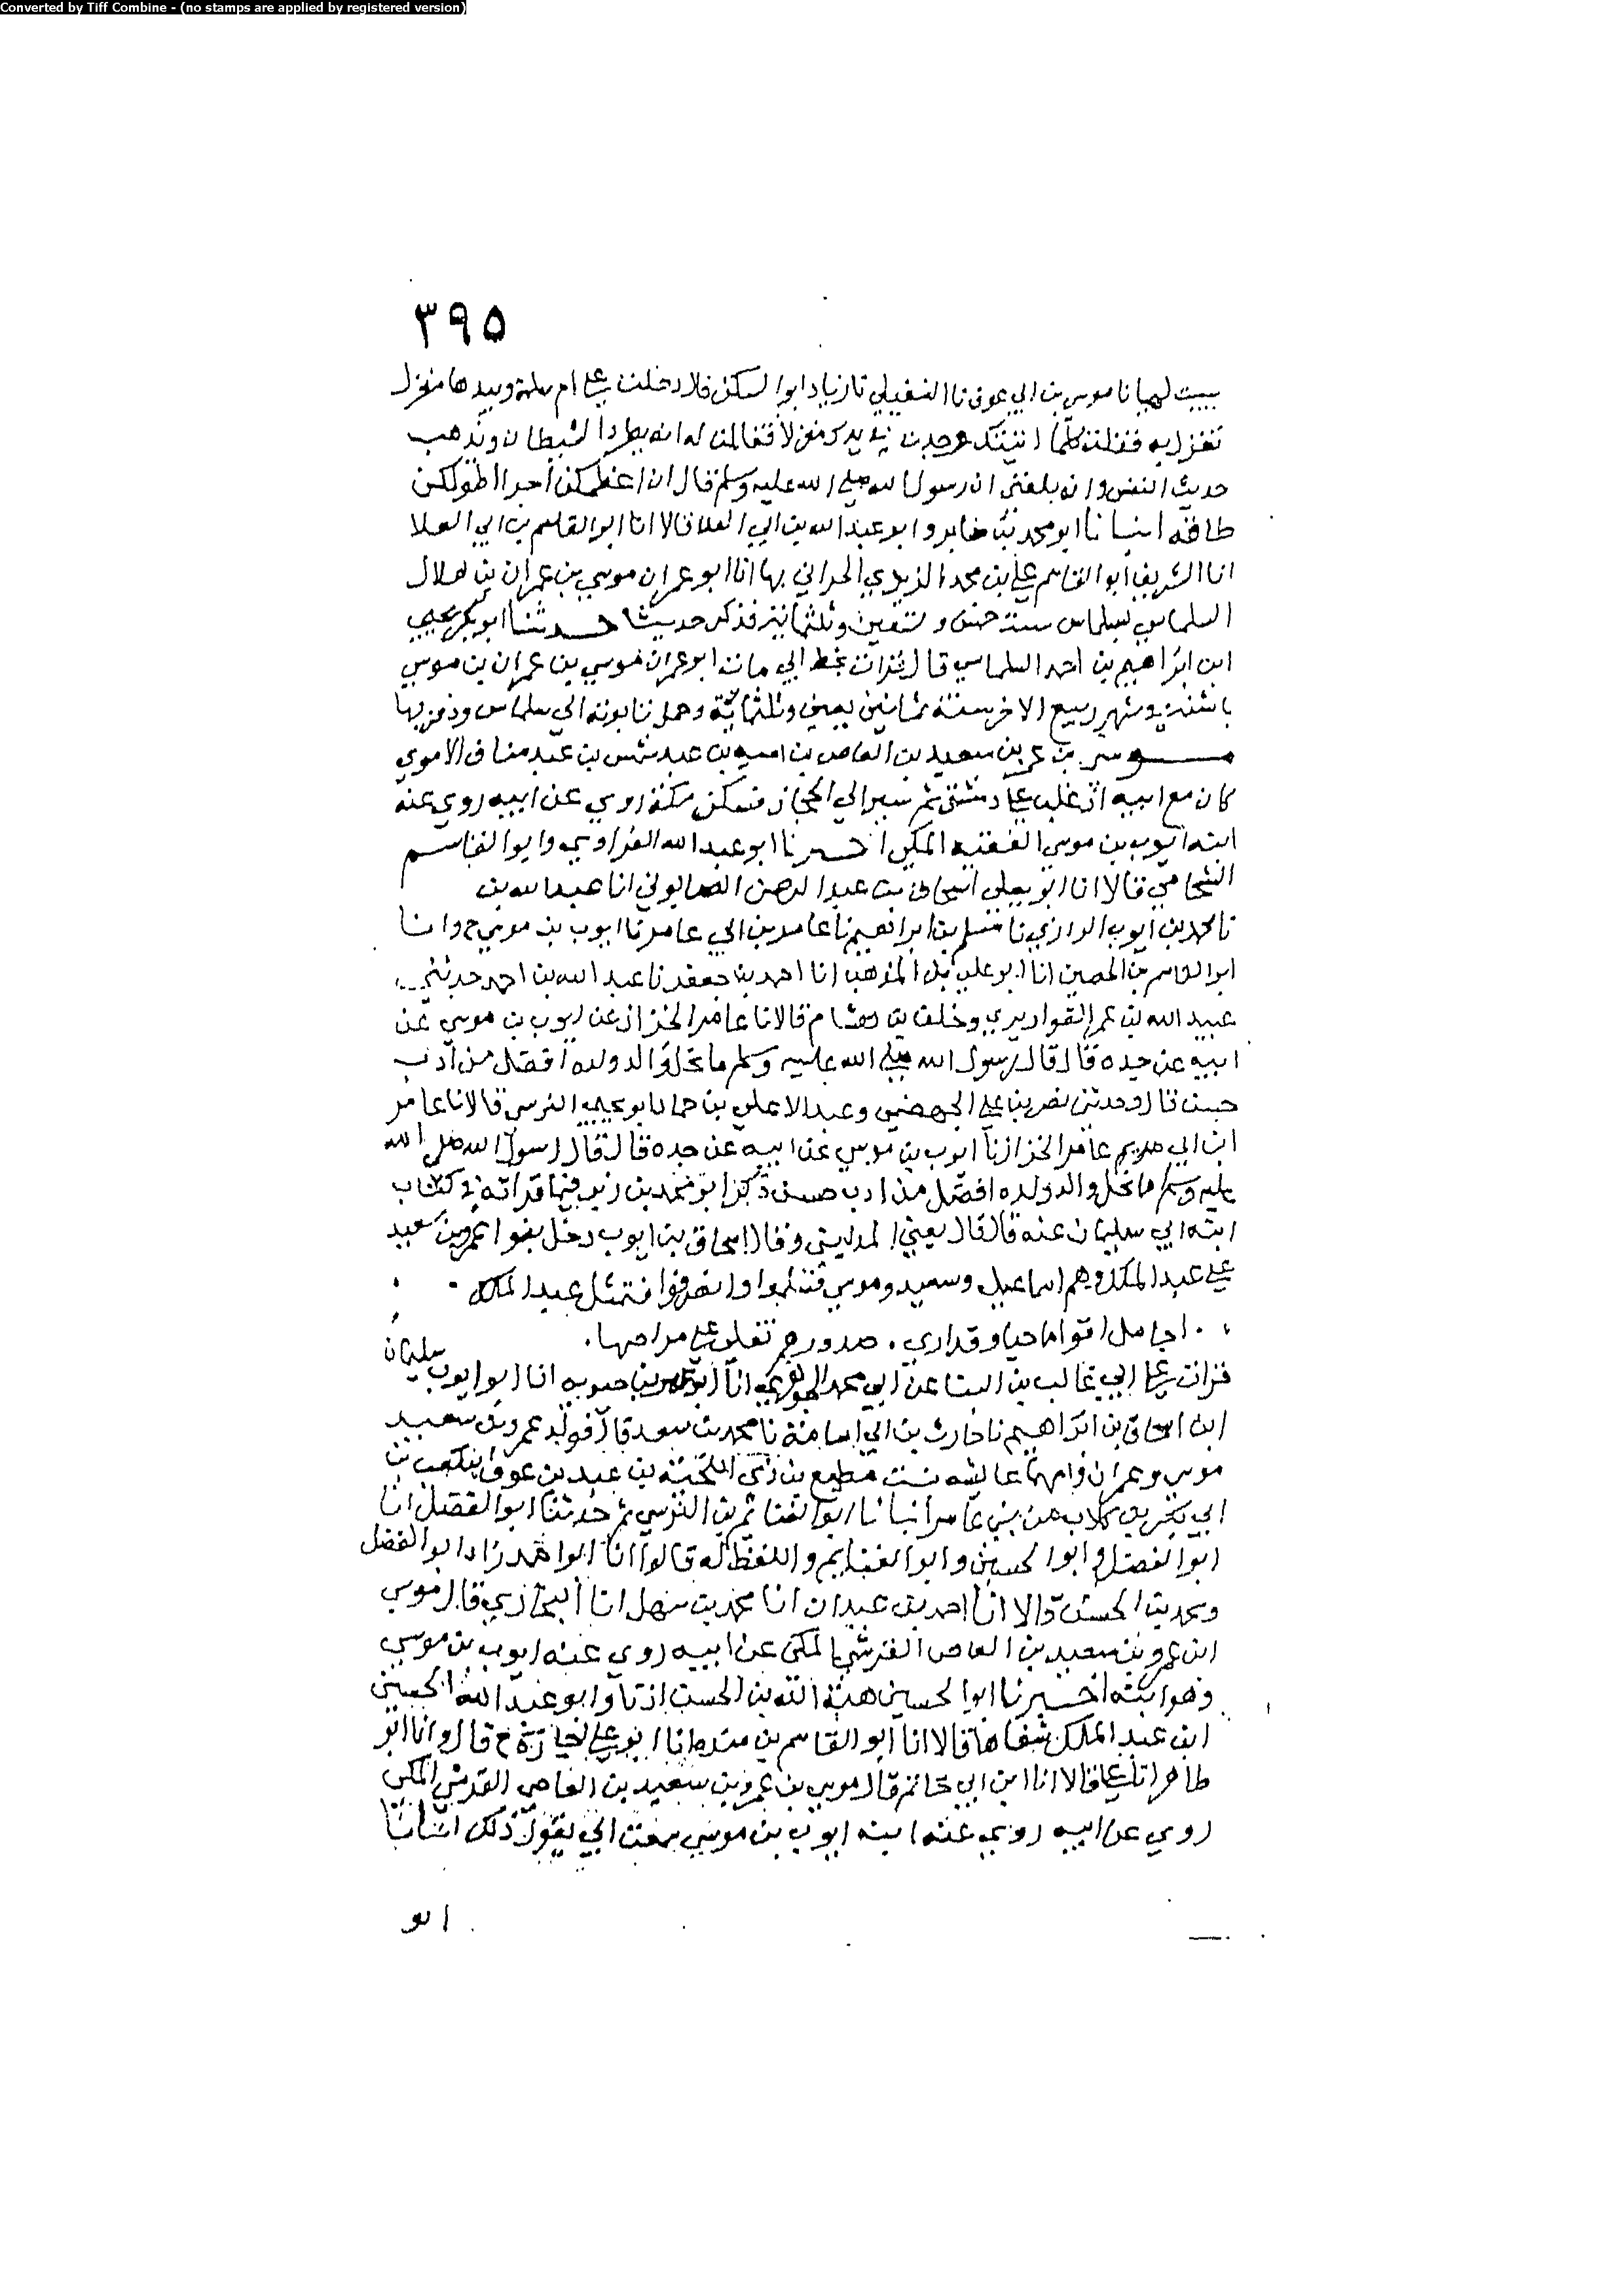 Converted by Tiff Combine - (no stamps are applied by registered version)
٣٩٥
ببيت لهيا نا موسى بن ابي عوف نا النفيلي نا زياد ابو السكن قال دخلت علي ام سلمة وبيدها مغزل
تغزل به فقلت كلما اتيتك وجدت في يدك مغزلا فقالت له انه يطرد الشيطان ويذهب
حديث النفس وانه بلغني ان رسول الله صلي الله عليه وسلم قال ان اعظمكن اجرا اطولكن
طاقة انبانا ابو محمد بن صابر وابو عبد الله بن ابي العلا قالا انا ابو القاسم بن ابي العلا
انا الشريف ابو القاسم علي بن محمد الزيدي الحراني بها انا ابو عمران موسي بن عمران بن هلال
السلماسي بسلماس سنة خمس و وثلثماية فذكر حديثا حدثنا ابو بكر يحيي
ابن ابراهيم بن احمد السلماسي قال قرات بخط ابي مات ابو عمران موسي بن عمران بن موسي
باشنه في شهر ربيع الاخر سنة ثمانين يعني وثلثماية وحمل تابوته الي سلماس ودفن بها
موسي بن عمرو بن سعيد بن العاص بن اميه بن عبد شمس بن عبد مناف الاموي
كان مع ابيه اذ غلب علي دمشق ثم سير الي الحجاز فسكن مكة روي عن ابيه روي عنه
ابنه ايوب بن موسي الفقيه المكي اخبرنا ابو عبد الله الفراوي وابو القاسم
الشحامي قالا انا ابو يعلي اسحاق بن عبد الرحمن الصابوني انا عبد الله بن
نا محمد بن ايوب الرازي نا مسلم بن ابراهيم نا عامر بن ابي عامر نا ايوب بن موسي ح وانا
ابو القاسم بن الحصين انا ابو علي بن المذهب انا احمد بن جعفر نا عبد الله بن احمد حدثني
عبيد الله بن عمر القواريري وخلف بن هشام قالا نا عامر الخزاز عن ايوب بن موسي عن
ابيه عن جده قال قال رسول الله صلي الله عليه وسلم ما نحل والد ولده افضل من ادب
حسن قال وحدثني نصر بن علي الجهضمي وعبد الاعلي بن حماد ابو يحيي النرسي قالا نا عامر
ابن ابي عامر الخزاز نا ايوب بن موسي عن ابيه عن جده قال قال رسول الله صلي الله
عليه وسلم ما نحل والد ولده افضل من ادب حسن ذكر ابو محمد بن زبر فيما قراته في كتاب
ابنه ابي سليمان عنه قال قال يعني المدايني وقال اسحاق بن ايوب دخل بنوا عمرو بن سعيد
علي عبد الملك وهم اسماعيل وسعيد وموسي فتكلموا وانصرفوا فتمثل عبد الملك
اجامل اقواما حيا وقد اري . صدورهم تغلي علي مراضها .
قرات علي ابي غالب بن البنا عن ابي محمد الجوهري انا ابو عمر بن حيويه انا ابو ايوب سليمان
ابن اسحاق بن ابراهيم نا حارث بن ابي اسامة نا محمد بن سعد قال فولد عمرو بن سعيد
موسي وعمران وامهما عايشه بنت مطيع بن ذي اللحية بن عبد بن عوف بن كعب بن
ابي بكر بن كلاب من بني عامر انبانا ابو الغنائم بن النرسي ثم حدثنا ابو الفضل انا
ابو الفضل وابو الحسين وابو الغنايم واللفظ له قالوا انا ابو احمد زاد ابو الفضل
ومحمد بن الحسن قالا انا احمد بن عبدان انا محمد بن سهل انا البخاري قال موسي
ابن عمرو بن سعيد بن العاص القرشي المكي عن ابيه روي عنه ايوب بن موسي
وهو ابنه اخبرنا ابو الحسين هبة الله بن الحسن اذنا وابو عبد الله الحسين
ابن عبد الملك شفاها قالا انا ابو القاسم بن منده انا ابو علي اجازة ح قال وانا ابو
طاهر انا علي قالا انا ابن ابي حاتم قال موسي بن عمرو بن سعيد بن العاص القرشي المكي
روي عن ابيه روي عنه ابنه ايوب بن موسي سمعت ابي يقول ذلك انبانا
ابو